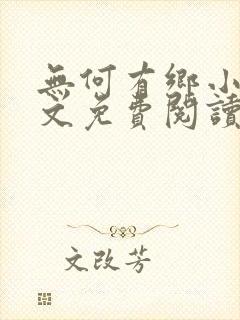 無何有鄉小
文免費閱讀
文改芳